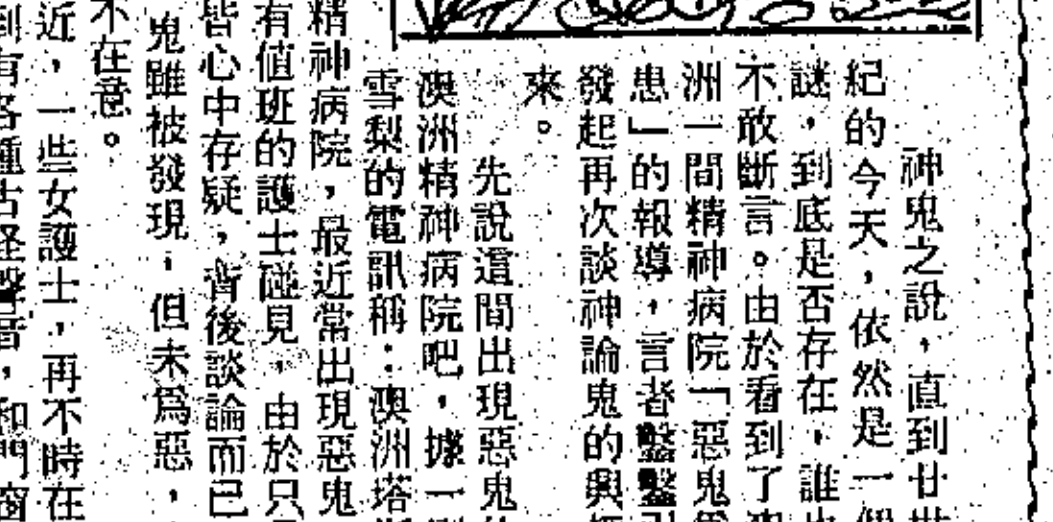 神鬼之說，直到廿世
紀的今天，依然是一個
謎，到底是否存在，誰也
不敢斷言。由於看到了澳
洲一間精神病院「惡鬼爲
患」的報導，言者鑿鑿引
發起再次談神論鬼的興
來。
先說這間出現惡鬼
澳洲精神病院吧，據一則
雪梨的電訊稱：澳洲塔
精神病院，最近常出現惡鬼
有值班的護士碰見，由於只
皆心中存疑，背後談論而已
鬼雖被發現；但未爲惡，
不在意。
近，一些女護士，再不時在
到有各種古怪聲音，和門窗